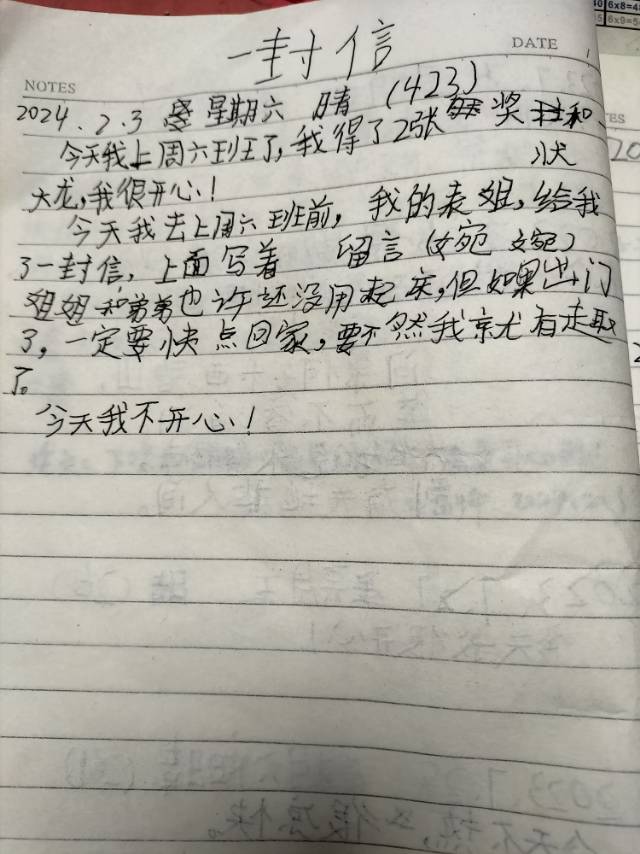 一封信
DATE
NOTES
2024.2.3 星期六 晴 (423)
今天我上周六班了,我得了2张 奖状和
大龙,我很开心!
今天我去上周六班前, 我的表姐,给我
了一封信, 上面写着 留言 (婉婉)
姐姐和弟弟也许还没用起床,但如果出门
了, 一定要快点回家, 要不然我就有走取
了。
今天我不开心!
6x8=4
6x9=5
20